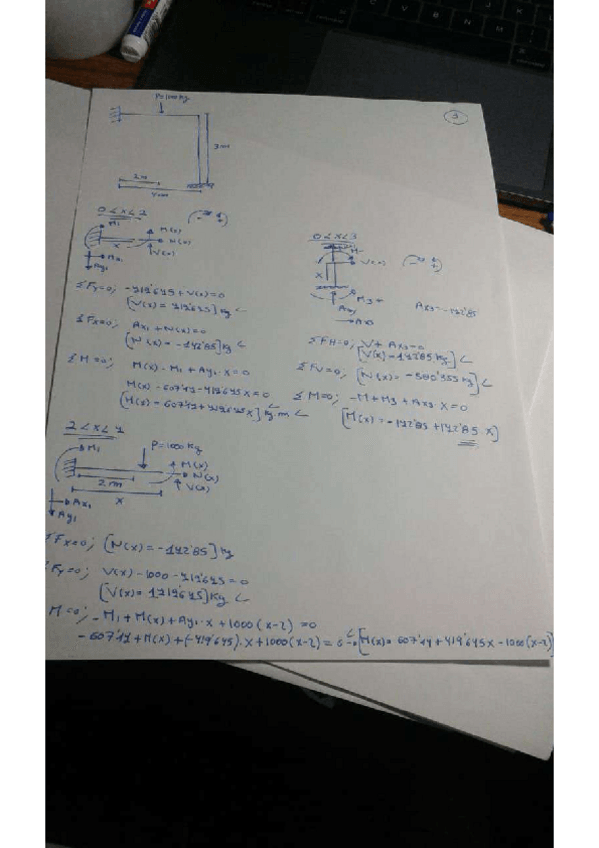 P=1000 Kg
3
3 m
2m
4m
0<x<2
M1
M(x)
N(x)
V(x)
x
Ax1
Ay1
ΣFy=0; -419'645+V(x)=0
[V(x)=419'645] Kg
ΣFx=0; Ax1+N(x)=0
[N(x)=-142'85] Kg
ΣM=0; M(x)-M1+Ay1·x=0
M(x)-607'14-419'645x=0
[M(x)=607'14+419'645x] Kg m
0<x<3
V(x)
x
M3
Ax3
Ax3=-142'85
ΣFH=0; V+Ax3=0
[V(x)=142'85 Kg]
ΣFV=0; [N(x)=-580'355 Kg]
ΣM=0; -M+M3+Ax3·x=0
[M(x)=-142'85+142'85·x]
2<x<4
M1
P=1000 Kg
M(x)
N(x)
V(x)
2 m
x
Ax1
Ay1
ΣFx=0; [N(x)=-142'85] Kg
ΣFy=0; V(x)-1000-419'645=0
[V(x)=1419'645] Kg
M=0; -M1+M(x)+Ay1·x+1000(x-2)=0
-607'14+M(x)+(-419'645)·x+1000(x-2)=0 [M(x)=607'14+419'645x-1000(x-2)]